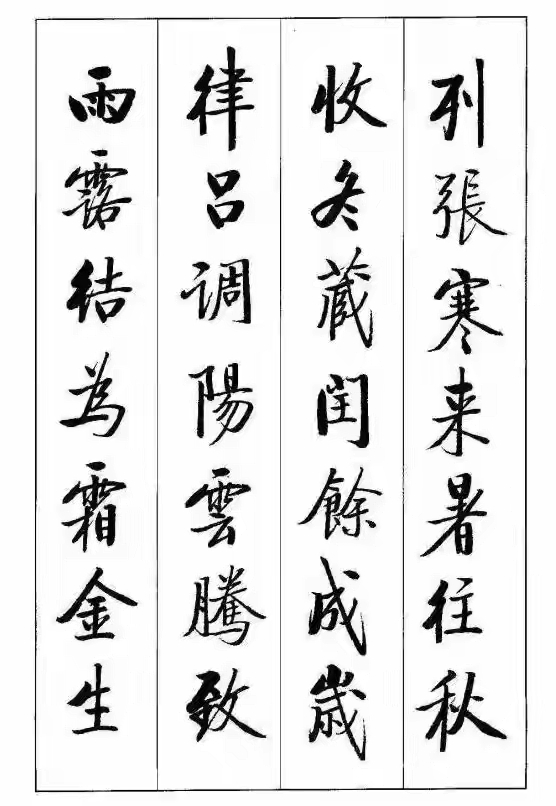 列張寒来暑往秋
收冬蔵闰餘成歲
律吕调陽雲騰致
雨露结為霜金生